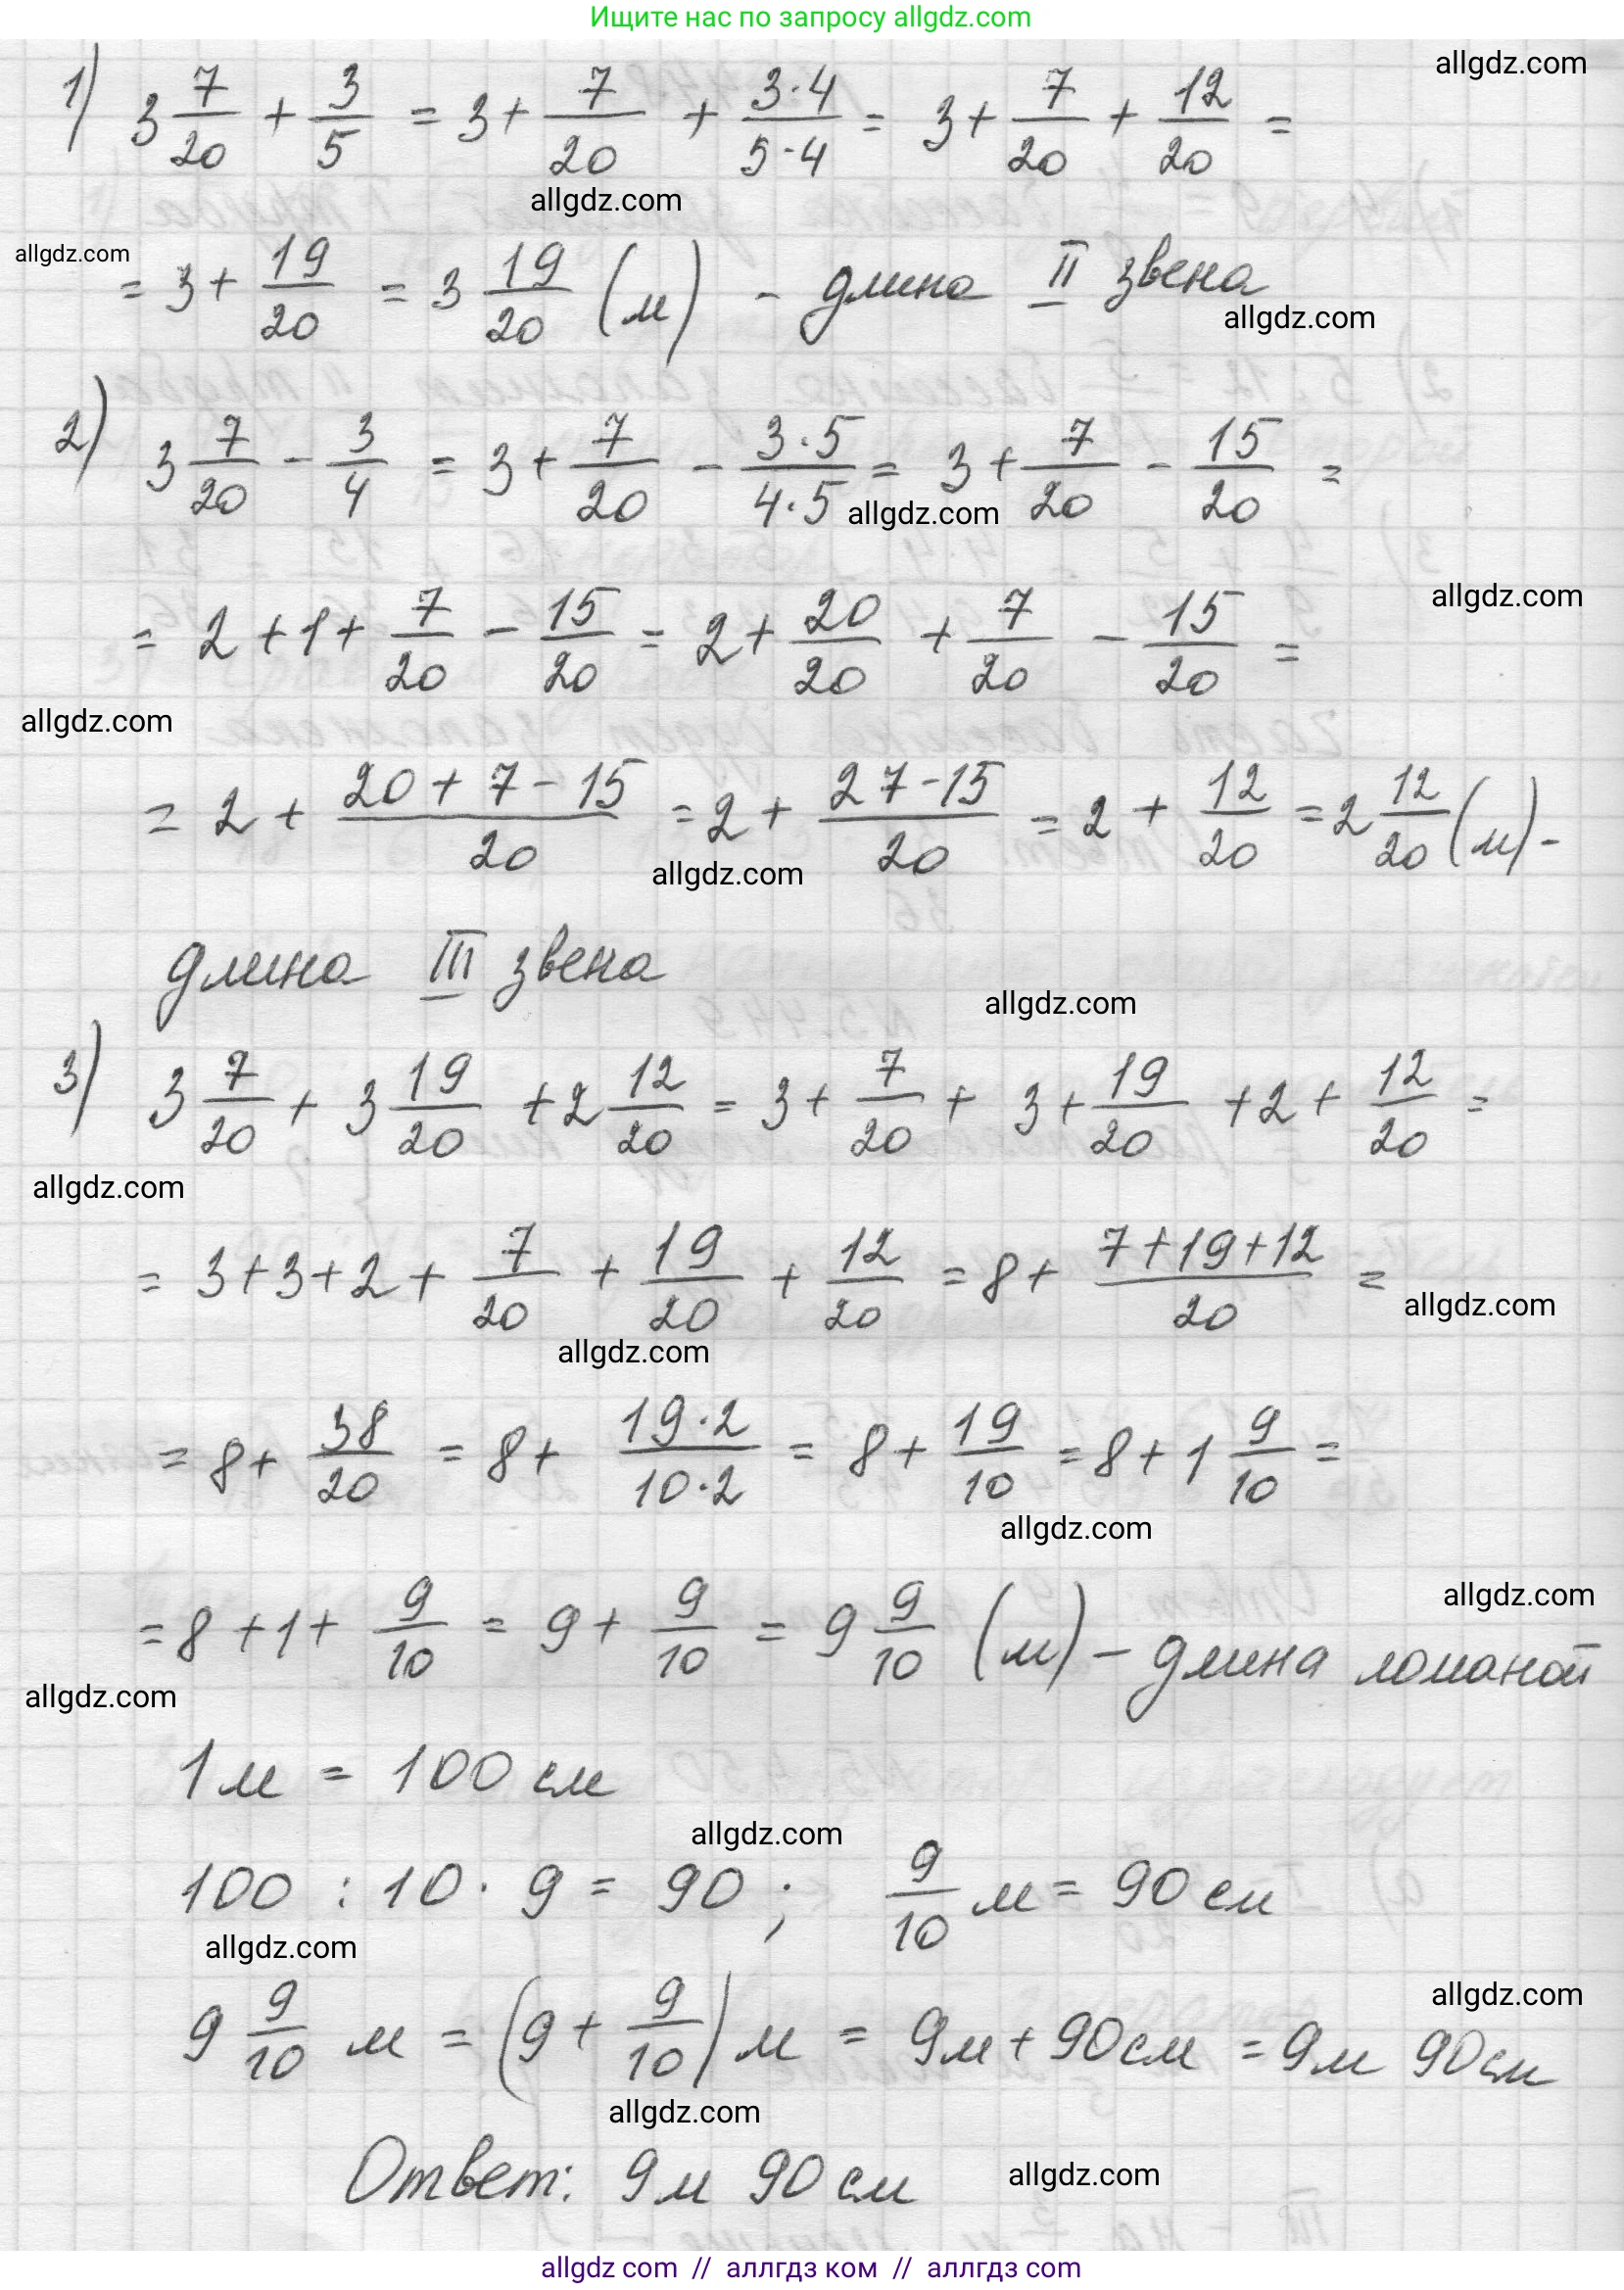 Ищите нас по запросу allgdz.com
allgdz.com
1) 3 7/20 + 3/5 = 3 + 7/20 + 3·4/5·4 = 3 + 7/20 + 12/20 =
allgdz.com
allgdz.com
= 3 + 19/20 = 3 19/20 (м) - длина II звена
allgdz.com
2) 3 7/20 - 3/4 = 3 + 7/20 - 3·5/4·5 = 3 + 7/20 - 15/20 =
allgdz.com
allgdz.com
= 2 + 1 + 7/20 - 15/20 = 2 + 20/20 + 7/20 - 15/20 =
allgdz.com
= 2 + 20 + 7 - 15/20 = 2 + 27 - 15/20 = 2 + 12/20 = 2 12/20 (м) -
allgdz.com
длина III звена
allgdz.com
3) 3 7/20 + 3 19/20 + 2 12/20 = 3 + 7/20 + 3 + 19/20 + 2 + 12/20 =
allgdz.com
= 3 + 3 + 2 + 7/20 + 19/20 + 12/20 = 8 + 7 + 19 + 12/20 =
allgdz.com
allgdz.com
= 8 + 38/20 = 8 + 19·2/10·2 = 8 + 19/10 = 8 + 1 9/10 =
allgdz.com
allgdz.com
= 8 + 1 + 9/10 = 9 + 9/10 = 9 9/10 (м) - длина ломаной
allgdz.com
1 м = 100 см
allgdz.com
100 : 10 · 9 = 90 ; 9/10 м = 90 см
allgdz.com
allgdz.com
9 9/10 м = (9 + 9/10) м = 9м + 90см = 9м 90см
allgdz.com
Ответ: 9м 90 см
allgdz.com
allgdz.com // аллгдз ком // аллгдз.com